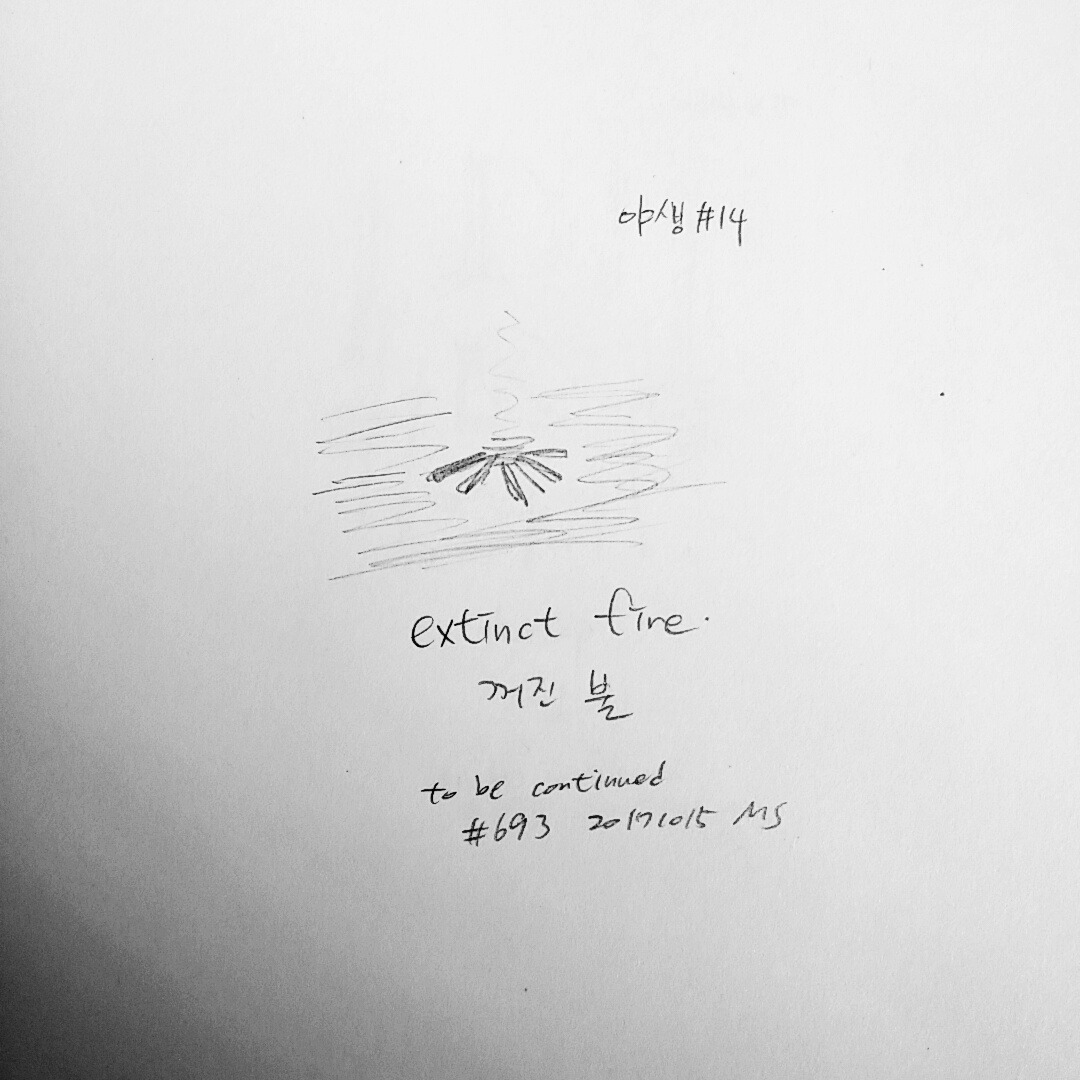 야생 #14
extinct fire.
꺼진 불
to be continued
#693 20171015 MS